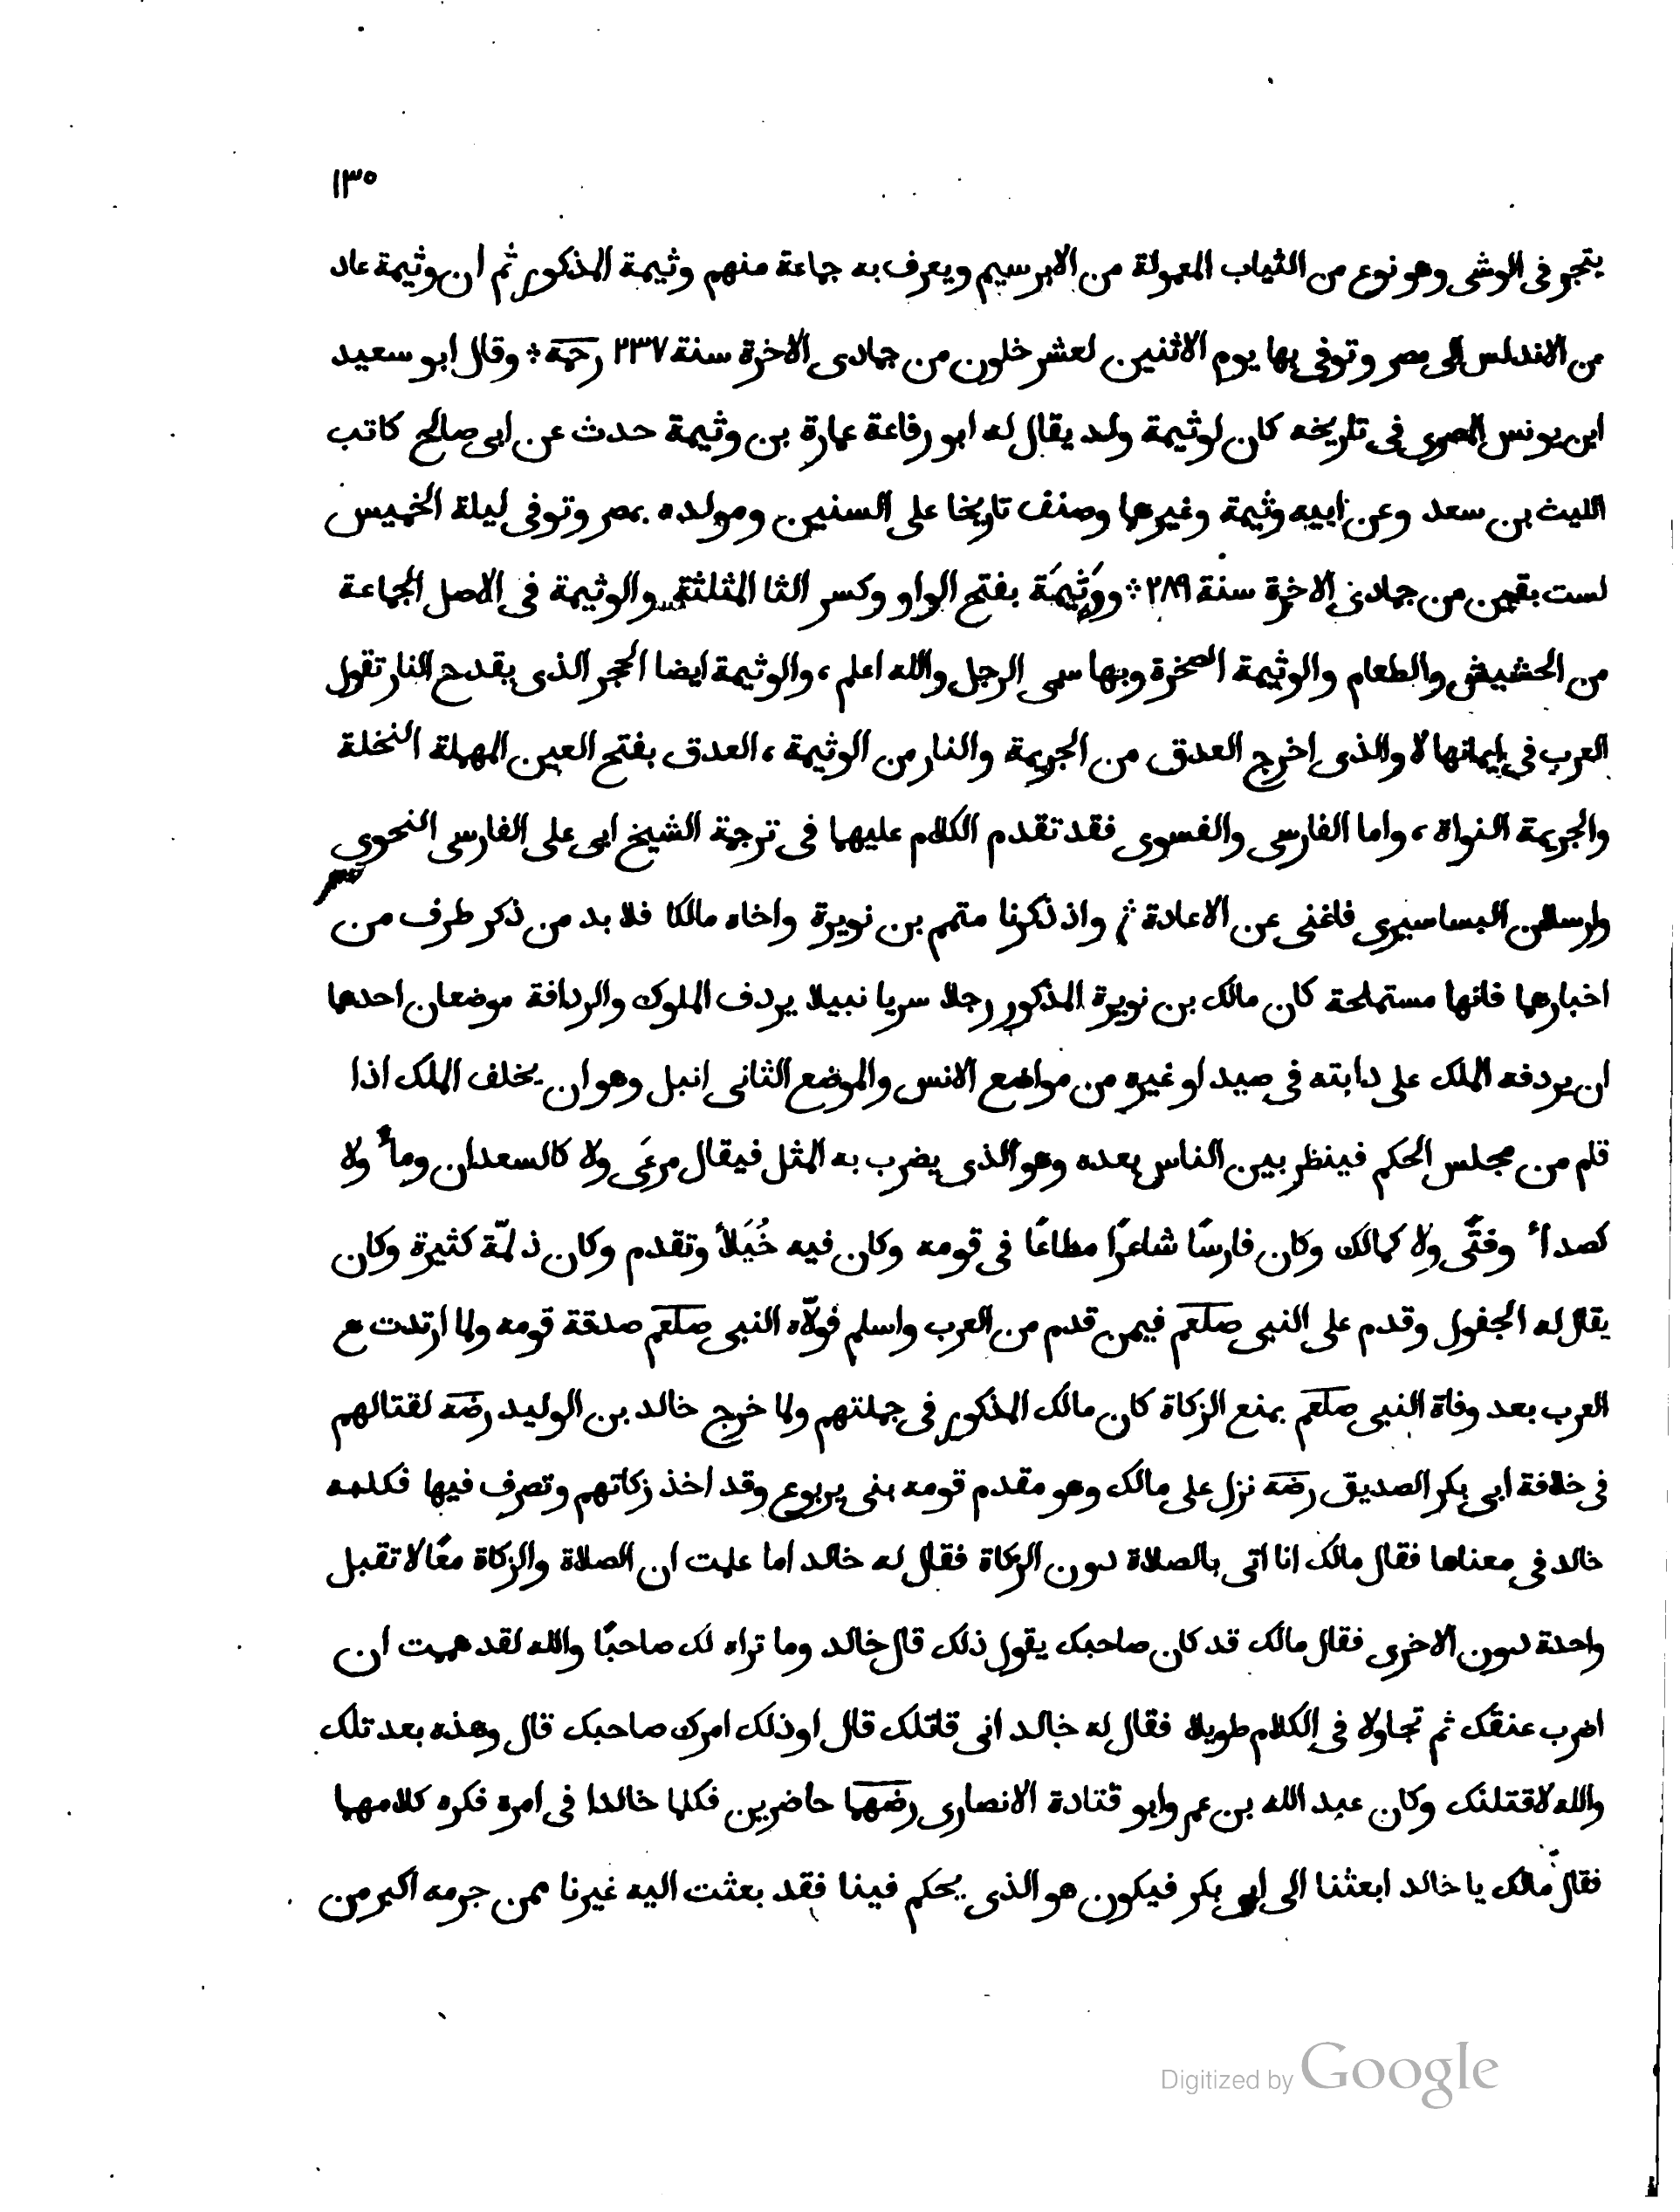 ١٣٥
يتجر فى الوشى وهو نوع من الثياب المعمولة من الابرسيم ويعرف به جماعة منهم وثيمة المذكور ثم ان وثيمة عاد
من الاندلس الى مصر وتوفى بها يوم الاثنين لعشر خلون من جمادى الاخرة سنة ٢٣٧ رحمه * وقال ابو سعيد
ابن يونس المصرى فى تاريخه كان لوثيمة ولد يقال له ابو رفاعة عمارة بن وثيمة حدث عن ابى صالح كاتب
الليث بن سعد وعن ابيه وثيمة وغيرهما وصنف تاريخا على السنين ومولده بمصر وتوفى ليلة الخميس
لست بقين من جمادى الاخرة سنة ٢٨٩ * ووَثِيمَة بفتح الواو وكسر الثا المثلثة والوثيمة فى الاصل الجماعة
من الحشيش والطعام والوثيمة الصخرة وبها سمى الرجل والله اعلم، والوثيمة ايضا الحجر الذى يقدح النار تقول
العرب فى ايمانها لا والذى اخرج العدق من الجريمة والنار من الوثيمة، العدق بفتح العين المهملة النخلة
والجريمة النواة، واما الفارسى والفسوى فقد تقدم الكلام عليهما فى ترجمة الشيخ ابى على الفارسى النحوى
وارسلان البساسيرى فاغنى عن الاعادة * واذ ذكرنا متمم بن نويرة واخاه مالكا فلا بد من ذكر طرف من
اخبارهما فانها مستملحة كان مالك بن نويرة المذكور رجلا سريا نبيلا يردف الملوك والردافة موضعان احدهما
ان يردفه الملك على دابته فى صيد او غيره من مواضع الانس والموضع الثانى انبل وهو ان يخلف الملك اذا
قام من مجلس الحكم فينظر بين الناس بعده وهو الذى يضرب به المثل فيقال مرعًى ولا كالسعدان وماءٌ ولا
كصدأء وفتًى ولا كمالك وكان فارسًا شاعرًا مطاعًا فى قومه وكان فيه خُيَلأ وتقدم وكان ذ لمّة كثيرة وكان
يقال له الجفول وقدم على النبى صلعم فيمن قدم من العرب واسلم فولّاه النبى صلعم صدقة قومه ولما ارتدت ع
العرب بعد وفاة النبى صلعم بمنع الزكاة كان مالك المذكور فى جملتهم ولما خرج خالد بن الوليد رضه لقتالهم
فى خلافة ابى بكر الصديق رضه نزل على مالك وهو مقدم قومه بنى يربوع وقد اخذ زكاتهم وتصرف فيها فكلمه
خالد فى معناها فقال مالك انا اتى بالصلاة دون الزكاة فقال له خالد اما علمت ان الصلاة والزكاة معًا لا تقبل
واحدة دون الاخرى فقال مالك قد كان صاحبك يقول ذلك قال خالد وما تراه لك صاحبًا والله لقد هممت ان
اضرب عنقك ثم تجاولا فى الكلام طويلا فقال له خالد انى قاتلك قال اوذلك امرك صاحبك قال وهذه بعد تلك
والله لاقتلنك وكان عبد الله بن عمر وابو قتادة الانصارى رضهما حاضرين فكلما خالدا فى امره فكره كلامهما
فقال مالك يا خالد ابعثنا الى ابى بكر فيكون هو الذى يحكم فينا فقد بعثت اليه غيرنا ممن جرمه اكبر من
Digitized by Google